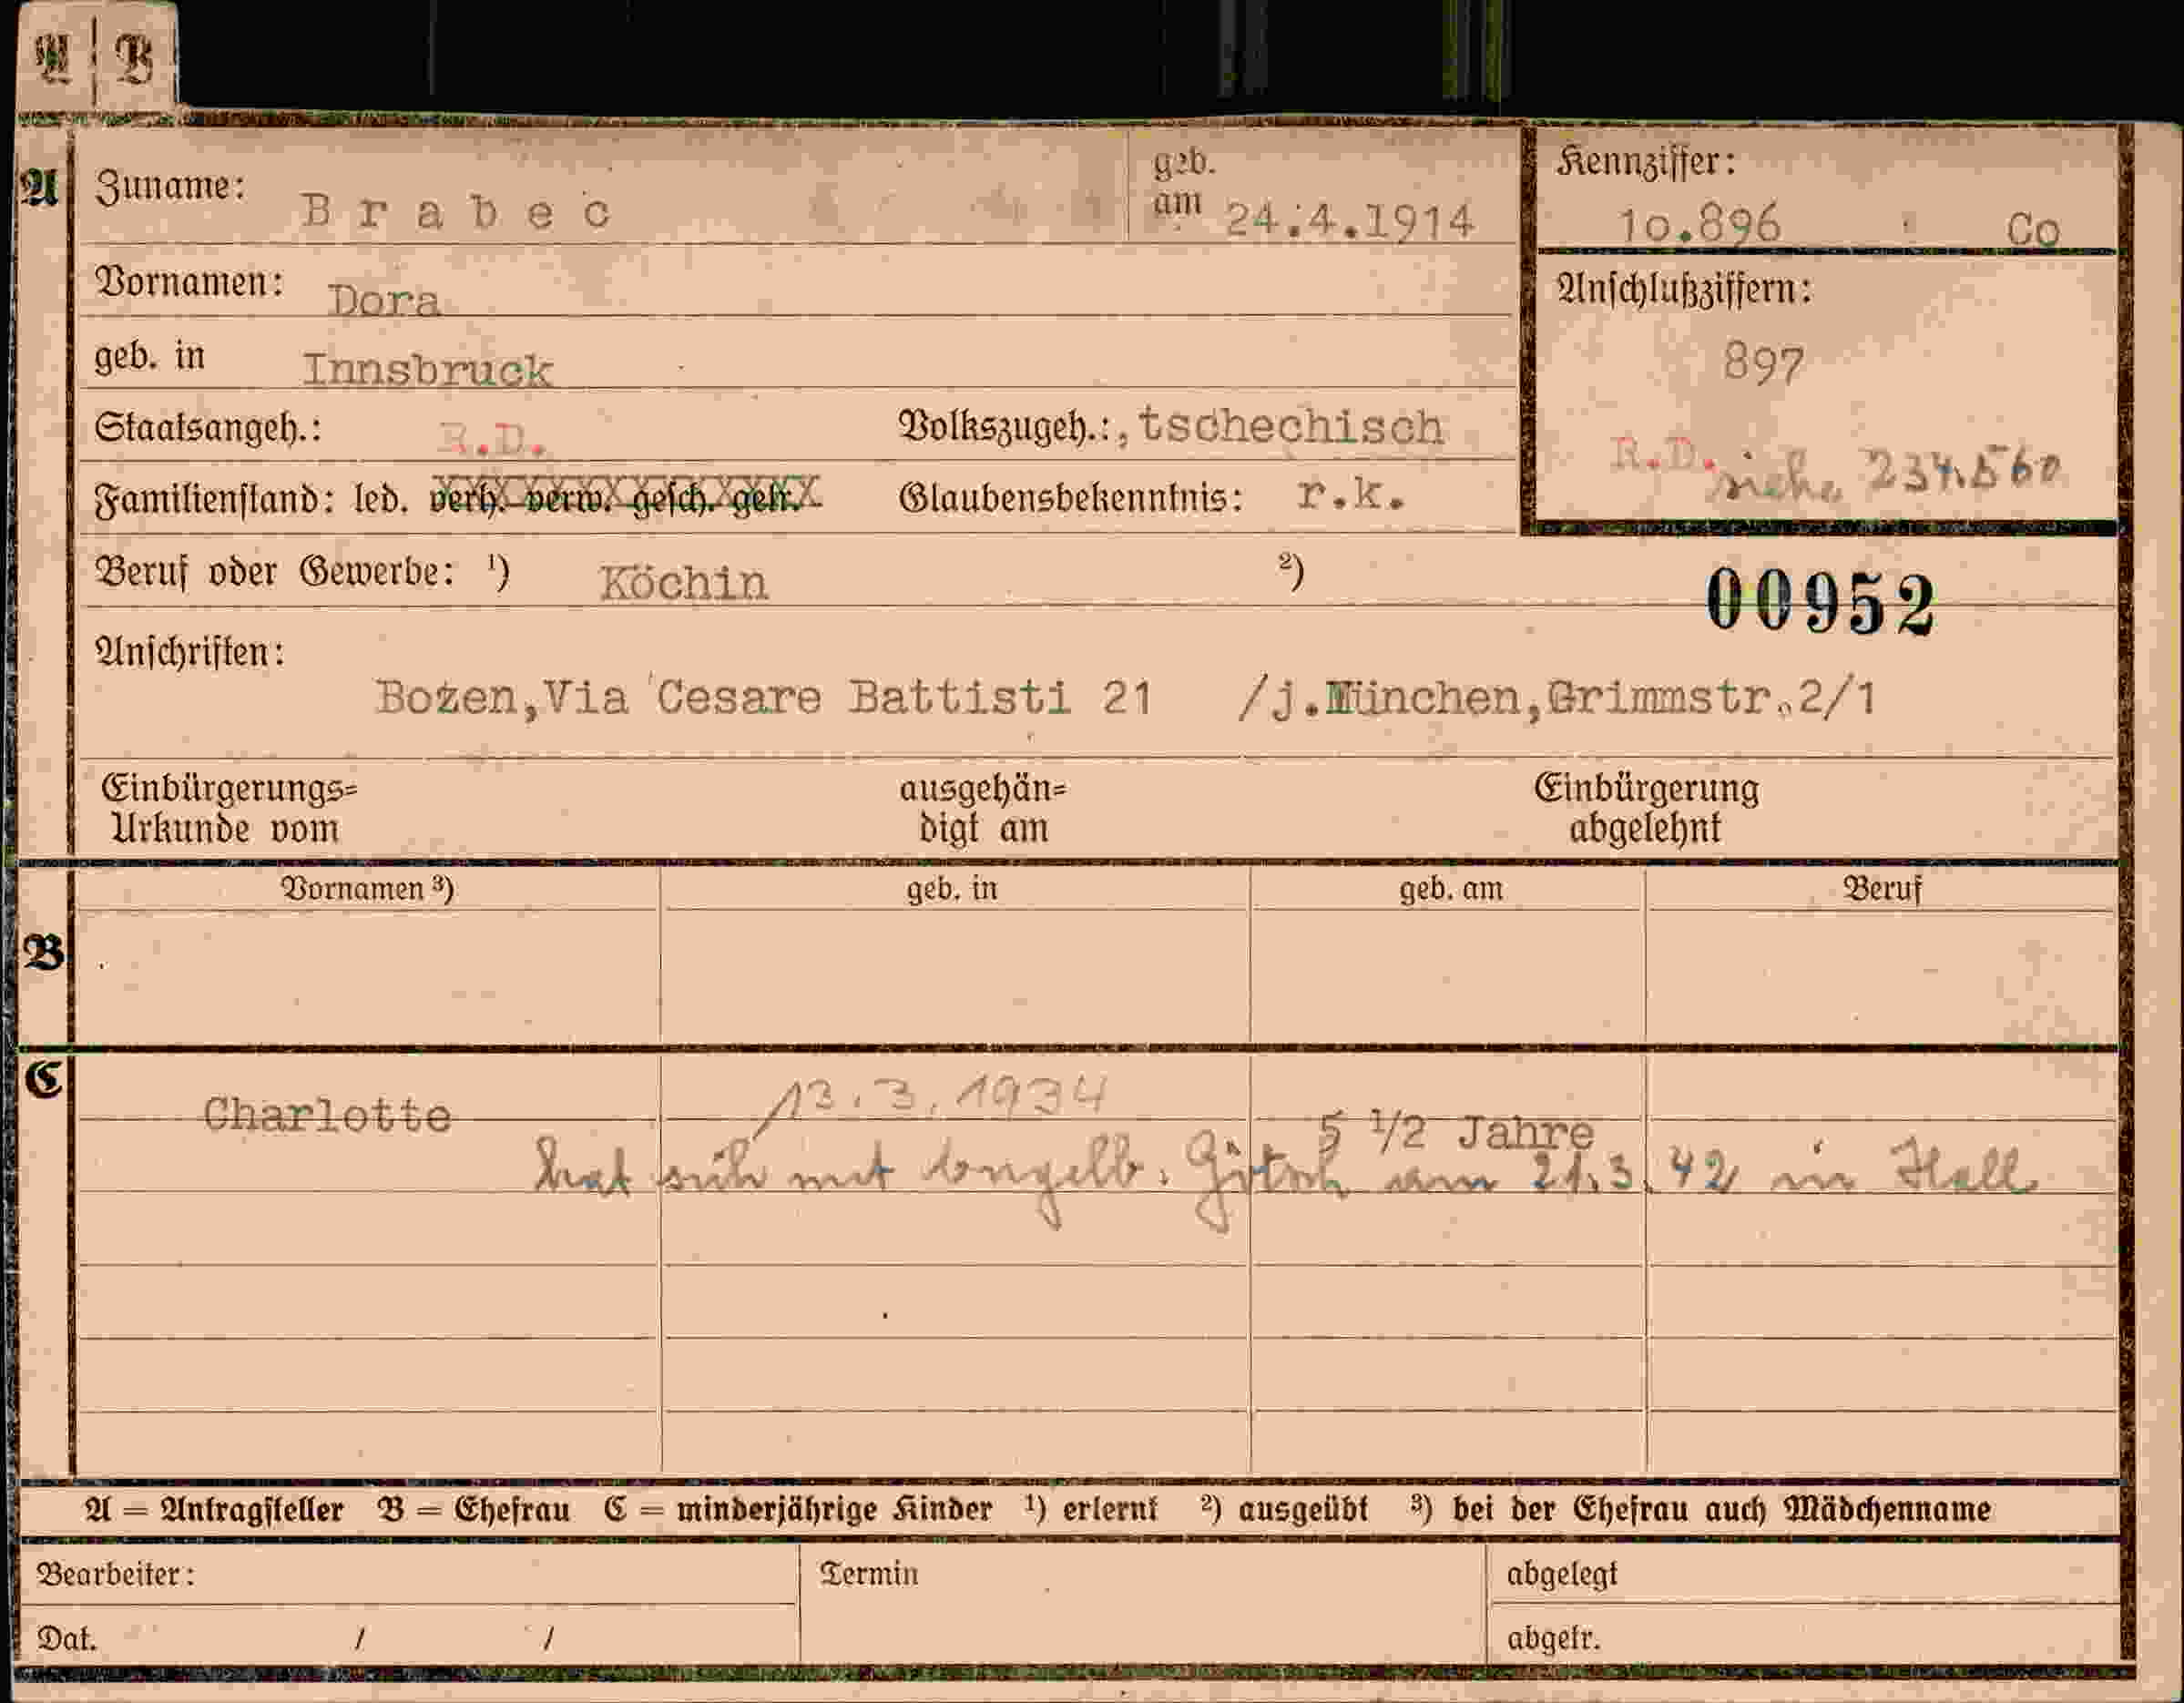 A B
A Zuname: Brabec geb. am 24.4.1914 Kennziffer: 10.896 Co
Vornamen: Dora Anschlußziffern:
geb. in Innsbruck 897
Staatsangeh.: R.D. Volkszugeh.: tschechisch R.D. siehe 234.560
Familienstand: led. verh. verw. gesch. getr. Glaubensbekenntnis: r.k.
Beruf oder Gewerbe: ¹) Köchin ²) 00952
Anschriften:
Bozen,Via Cesare Battisti 21 /j.München,Grimmstr.2/1
Einbürgerungs= ausgehän= Einbürgerung
Urkunde vom digt am abgelehnt
Vornamen ³) geb. in geb. am Beruf
B
C
Charlotte 13.3.1934 5 1/2 Jahre
hat sich mit am 21.3.42 in Hall
A = Antragsteller B = Ehefrau C = minderjährige Kinder ¹) erlernt ²) ausgeübt ³) bei der Ehefrau auch Mädchenname
Bearbeiter: Termin abgelegt
Dat. / / abgetr.